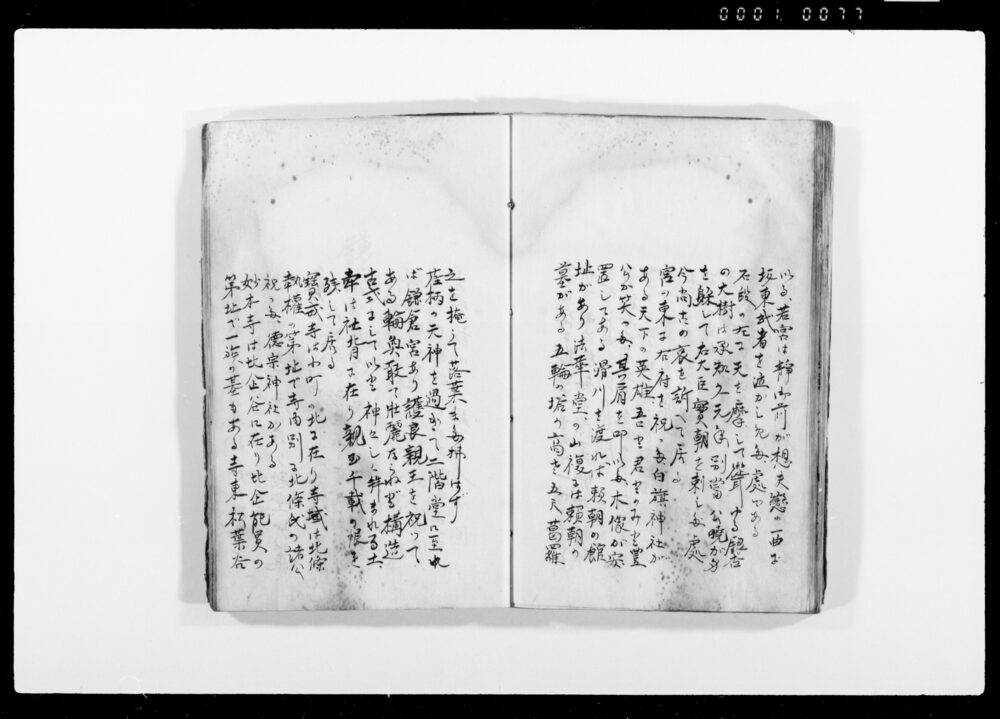 0001. 0077
以る、若宮は静御前が想夫戀の一曲に
坂東武者を泣かした處である
石段の左に天を摩して聳ゆる銀杏
の大樹は承久元年別當公暁が身
を躱して右大臣實朝を刺した處
今尚其の哀を訴へて居る
宮の東に右府を祝つた白旗神社が
ある天下の英雄吾と君とのみと豊
公が笑つた其肩を叩いた木像が安
置してある滑川を渡れば頼朝の館
址があり法華堂の山復には頼朝の
墓がある五輪の塔の高さ五尺蔦羅
之を掩えて落葉又た掃はず
荏柄の天神を過ぎて二階堂に至れ
ば鎌倉宮あり護良親王を祝つて
ある輪奐敢て壮麗ならねど構造
古式にして以と神々し幷まれる土
牢は社背に在り親王千載の恨を
残して居る
寳戒寺は小町の北に在り寺域は北條
執權の第址で寺内別に北條氏の諸公
祝つた德宗神社がある
妙本寺は比企谷に在り比企能員の
第址で一族の墓もある寺東朽葉谷